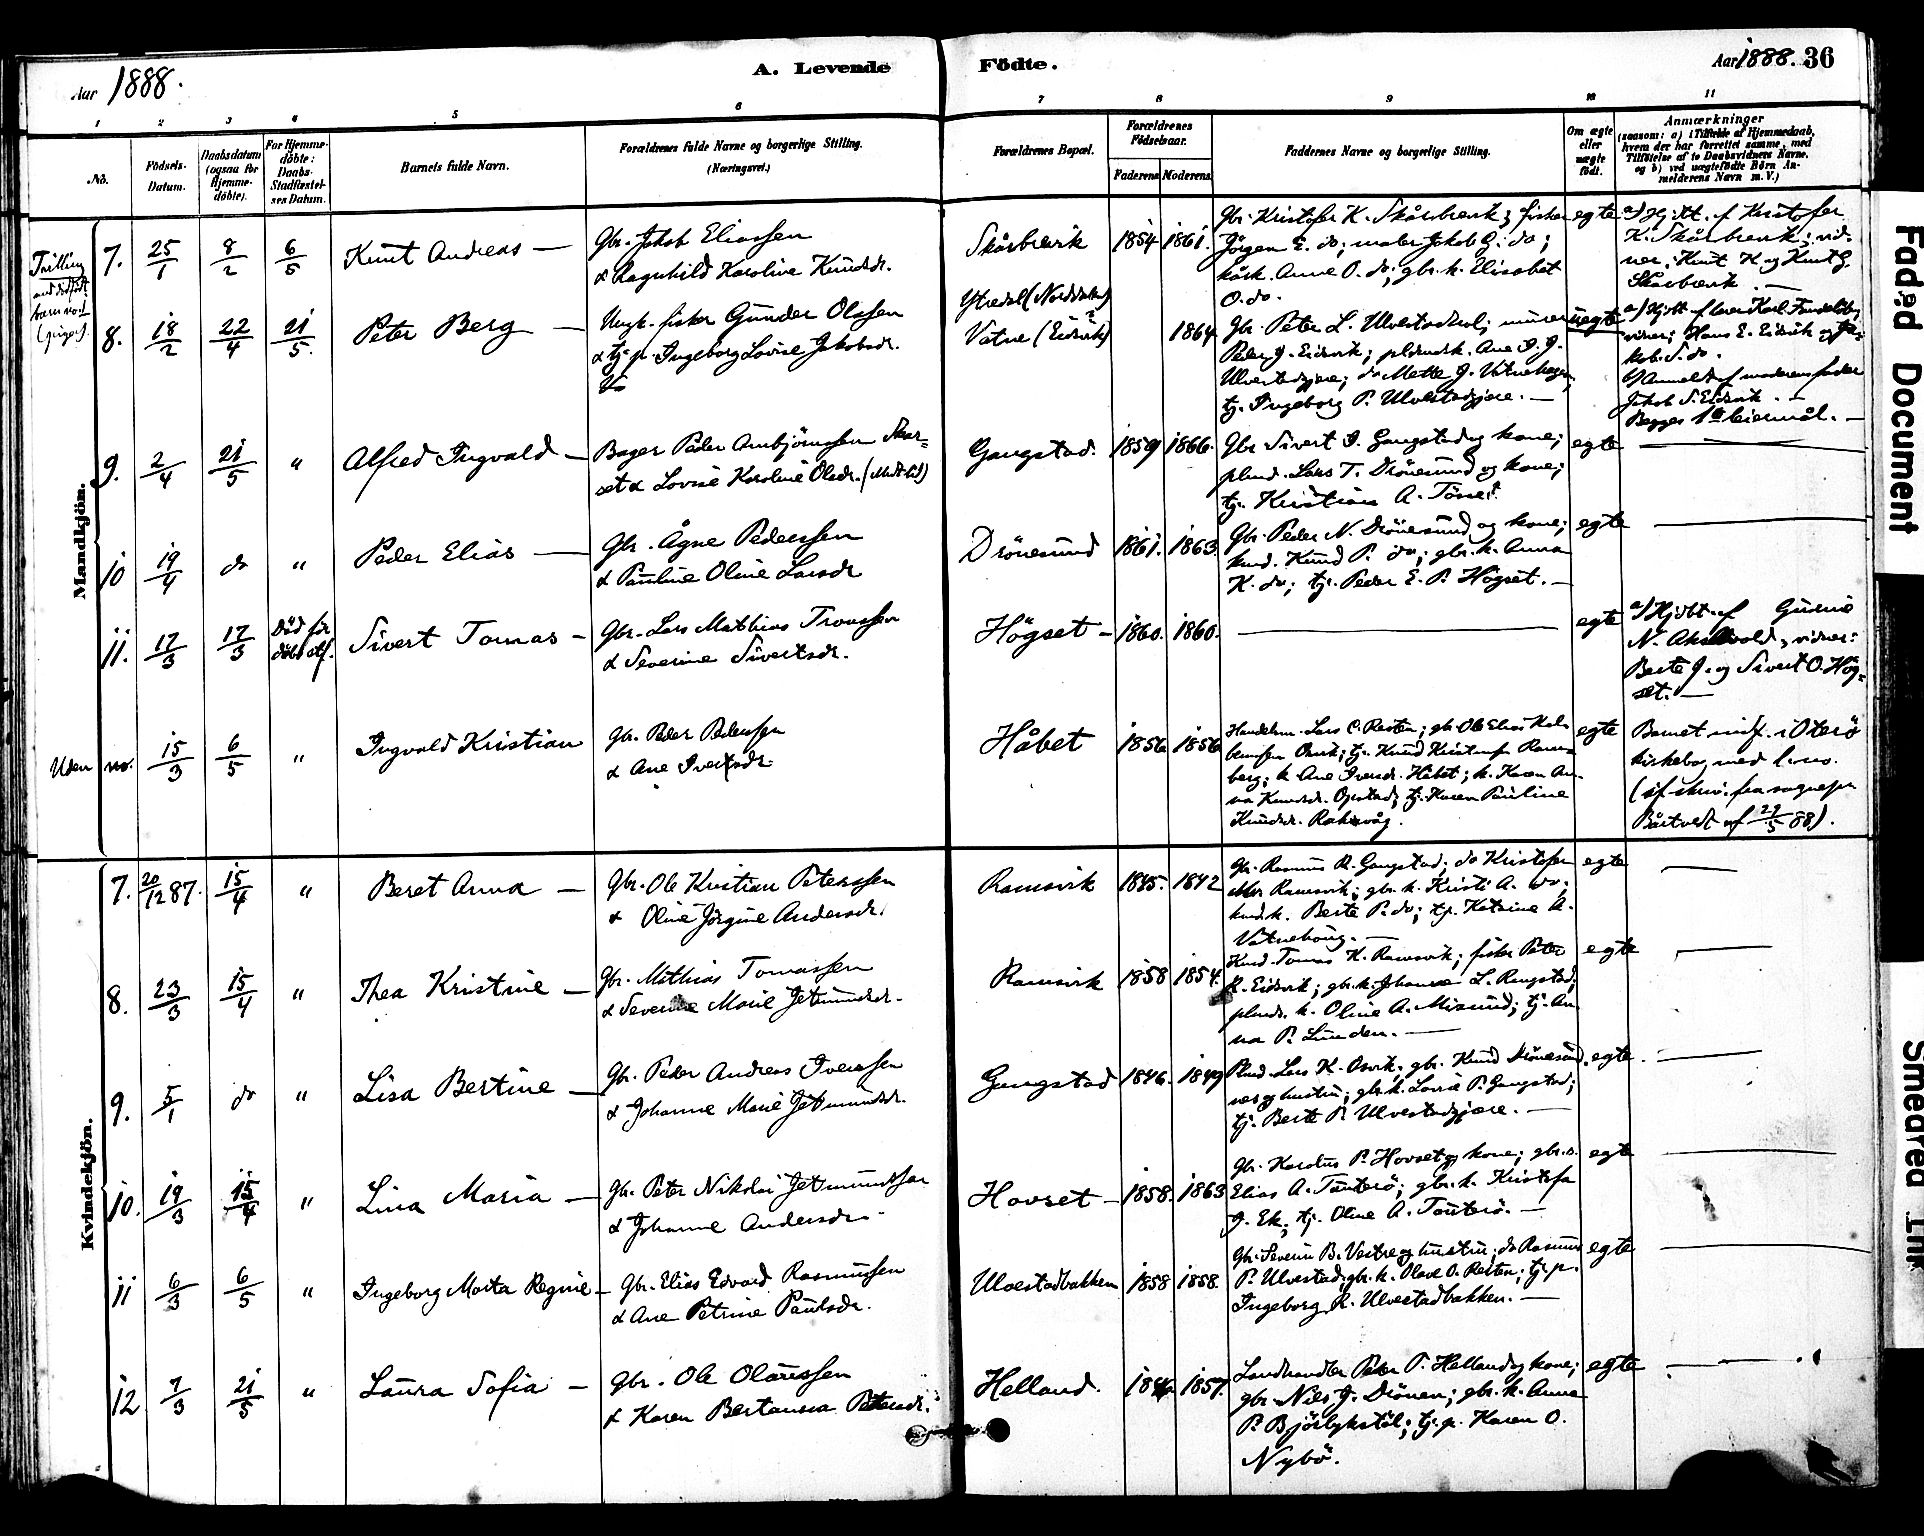 Aar 1888.
A. Levende
Födte.
Aar 1888. 36
1 2 3 4 5 6 7 8 9 10 11
No.
Födsels-Datum.
Daabsdatum (ogsaa for Hjemme-döbte).
For Hjemme-döbte: Daabs-Stadfæstel-ses Datum.
Barnets fulde Navn.
Forældrenes fulde Navne og borgerlige Stilling.
(Næringsvei.)
Forældrenes Bopæl.
Forældrenes Födselsaar.
Faderens Moderens
Faddernes Navne og borgerlige Stilling.
Om ægte eller uægte födt.
Anmærkninger
(saasom: a) i Tilfælde af Hjemmedaab,
hvem der har forrettet samme, med
Tilföielse af to Daabsvidners Navne,
og b) ved uægtefödte Börn An-
melderens Navn m. V.)
Mandkjön.
Tvilling
7. 25/1 8/2 6/5 Knut Andreas —
Gbr. Jakob Eliassen
& Ragnhild Karoline Knudsdr.
Skårbrevik 1854 1861.
Gbr. Kristofer K. Skårbrevik; fisker
Jörgen E. do; maler Jakob G. do;
kårk. Anne O. do; gbr. k. Elisabet
O. do.
egte
a) Hj.dt. af Kristofer
K. Skårbrevik; vid-
ner: Knut K. og Knut G.
Skårbrevik. —
8. 18/2 22/4 21/5. Peter Berg —
Ungk. fisker Gunder Olssen
& tj. p. Ingeborg Lovise Jakobsdr.
Ytredal (Norddalen)
Vatne (Eidsvik) 1864
Gbr. Peter L. Ulvestadhol; murer
Peder J. Eidsvik;
Ulvestadgjære; do Mette J. Vatnehagen,
tj. Ingeborg P. Ulvestadgjære. —
uegte
vidner: Hans E. Eidsvik og Ja-
kob S. do.
b) Anmeldt af moderens fader
Jakob S. Eidsvik. —
Begges 1ste leiermål. —
9. 2/4 21/5 " Alfred Ingvald —
Bager Peder Arnbjörnssen Skor-
set & Lovise Karoline Olsdr.
Gangstad. 1859 1866.
Gbr. Sivert I. Gangstad og kone;
plmd. Lars T. Drönesund og kone;
tj. Kristian A.
egte
10 19/4 do " Peder Elias —
Gbr. Ågne Pederssen
& Pauline Oline Larsdr
Drönesund 1861. 1863.
Gbr. Peder N. Drönesund og kone;
kmd. Knud P. do; gbr. k. Anna
K. do; tj. Peder E. P. Högset. —
egte
11. 17/3 17/3 Död för Sivert Tomas —
Gbr. Lars Mathias Tronssen
& Severine Sivertsdr.
Högset — 1860. 1860.
egte
a) Hjdbt. af Gurine
N. vidner:
Berte J. og Sivert O. Hög-
set. —
Uden no. 15/3 6/5 " Ingvald Kristian
Gbr. Peder Pederssen
& Ane Ivertsdr.
Håbet 1856 1856
Handelsm. Lars C. Resten; gbr. Ole Elias
berg; k. Ane Iversdr. Håbet; k. Karen An-
na Knudsdr. Opstad; tj. Karen Pauline
Knudsdr. Rakvåg.
egte
Barnet indf. i Oterö
kirkebog med l. no.
(if. skriv. fra sognepr.
af 29/5 88).
Kvindekjön.
7. 20/12 87. 15/4 " Beret Anna —
Gbr. Ole Kristian Peterssen
& Oline Jörgine Andersdr.
Ramsvik 1845. 1842
Gbr. Rasmus R. Gangstad; do Kristofer
Ramsvik; gbr. k. Kristi A. do;
Berte P. do; tj. Katrine A.
Vatnehaug. —
egte
8. 23/3 15/4 " Thea Kristine —
Gbr. Mathias Tomassen
& Severine Marie Jetmundsdr. -
Ramsvik 1858 1854.
Kmd. Tomas K. Ramsvik; fisker Peter
R. Eidsvik; gbr. k. Johanne L. Rengstad;
plmds. k. Oline A. Misund; tj. An-
na P. Lunden. —
egte
9. 5/1 do " Lisa Bertine —
Gbr. Peder Andreas Iverssen
& Johanne Marie Jetmundsdr.
Gangstad 1846. 1849
Plmd. Lars K. Osvik; gbr. Knud Drönesund.
og hustru; gbr. k. Lovise P. Gangstad;
tj. Berte P. Ulvestadgjære. —
egte.
10. 19/3 15/4 " Lina Maria —
Gbr. Peter Nikolai Jetmundssen
& Johanne Andersdr.
Hovset — 1858. 1863
Gbr. Karolus P. Hovset og kone; gbr. s.
Elias A. Tauterö; gbr. k. Kristofa
J. Ek; tj. Oline A. Tauterö. —
egte
11 6/3 6/5 " Ingeborg Marta Regine —
Gbr. Elias Edvard Rasmussen
& Ane Petrine Paulsdr.
Ulvestadbakken 1858 1858.
Gbr. Severin B. Vestre og hustru; do Rasmus
P. Ulvestad; gbr. k. Olave O. Resten; tj. p.
Ingeborg R. Ulvestadbakken. —
egte
12 7/3 21/5 " Laura Sofia —
Gbr. Ole Olaussen
& Karen Bertanna Petersdr.
Helland. 1857.
Landhandler Peter P. Helland og kone;
gbr. Nils J. Drönen; gbr. k. Anna
P. Björlykstöl; tj. p. Karen O.
Nybö.
egte
Faded Document
Smeared Ink